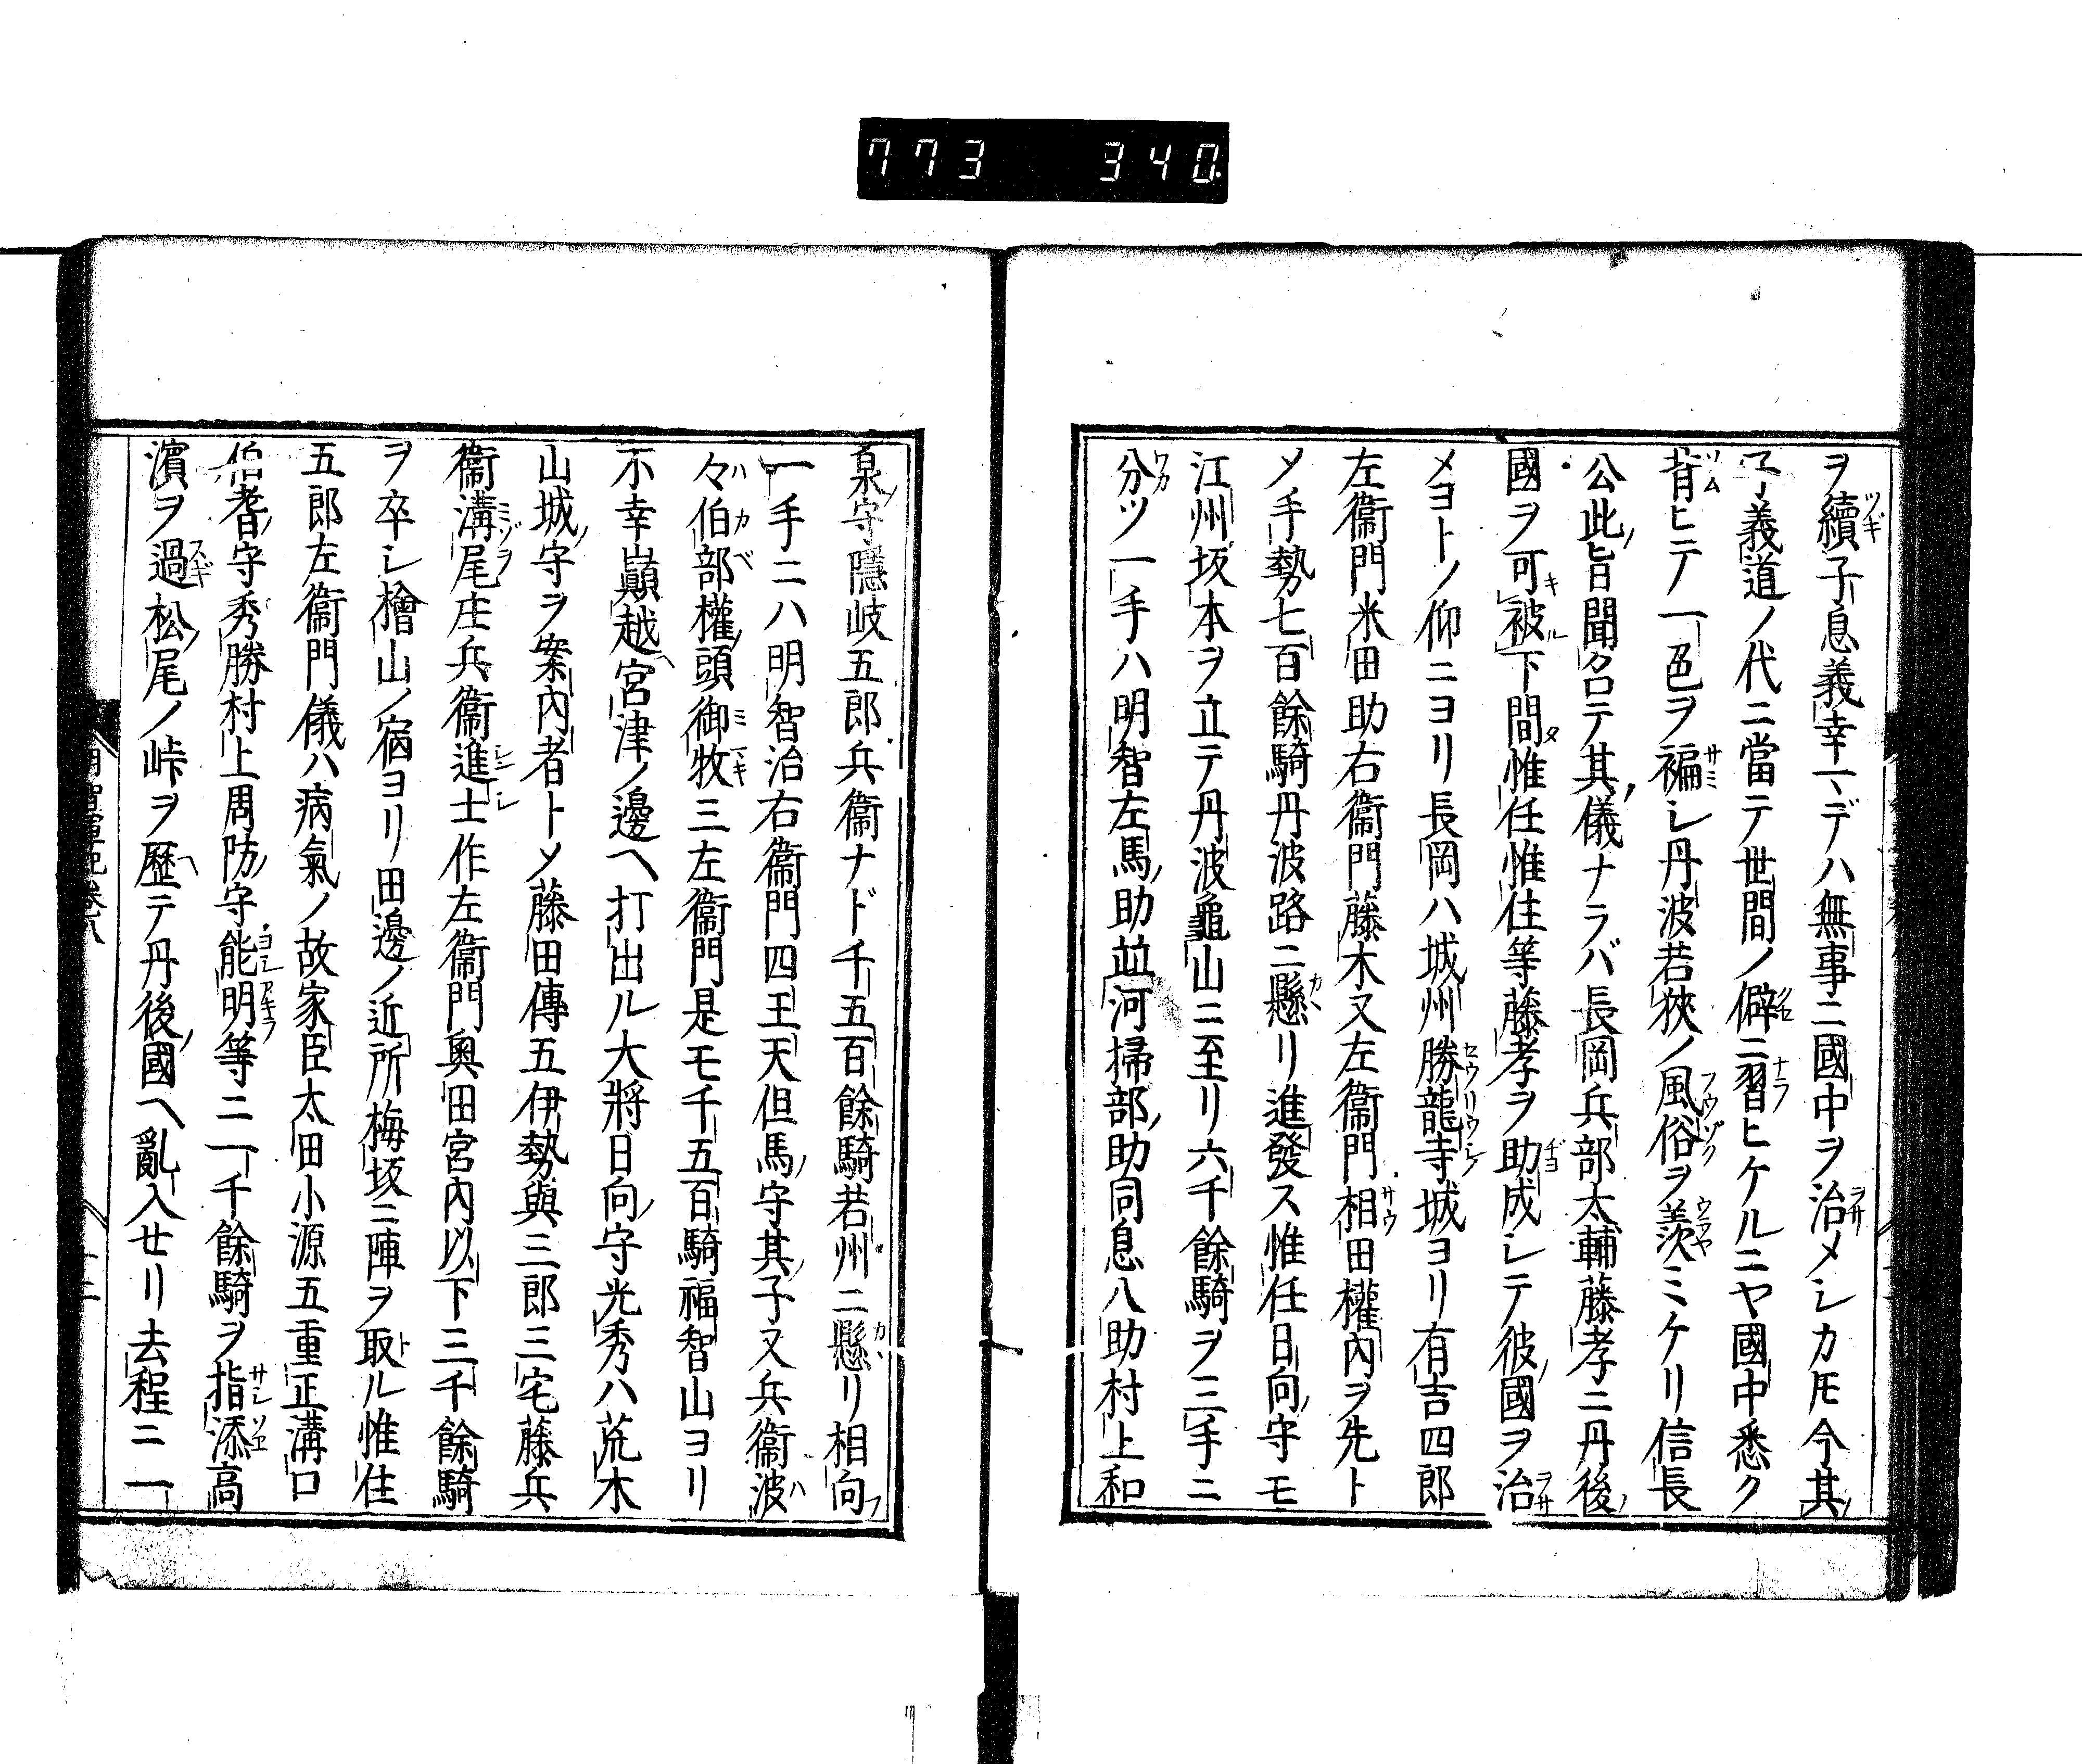 773 340
ヲ續子息義幸マデハ無事ニ國中ヲ治メシカ𪜈今其
子義道ノ代ニ當テ世間ノ僻ニ習ヒケルニヤ國中悉ク
背ヒテ一色ヲ褊シ丹波若狹ノ風俗ヲ羨ミケリ信長
公此旨聞召テ其儀ナラバ長岡兵部太輔藤孝ニ丹後
國ヲ可被下間惟任惟住等藤孝ヲ助成シテ彼國ヲ治
メヨトノ仰ニヨリ長岡ハ城州勝龍寺城ヨリ有吉四郎
左衞門米田助右衞門藤木又左衞門相田權內ヲ先ト
メ手勢七百餘騎丹波路ニ懸リ進發ス惟任日向守モ
江州坂本ヲ立テ丹波龜山ニ至リ六千餘騎ヲ三手ニ
分ツ一手ハ明智左馬助並河掃部助同息八助村上和
泉守隱岐五郎兵衞ナド千五百餘騎若州ニ懸リ相向
一手ニハ明智治右衞門四王天但馬守其子又兵衞波
々伯部權頭御牧三左衞門是モ千五百騎福智山ヨリ
不幸巓越宮津ノ邊ヘ打出ル大將日向守光秀ハ荒木
山城守ヲ案內者トメ藤田傳五伊勢與三郎三宅藤兵
衞溝尾庄兵衞進士作左衞門奧田宮內以下三千餘騎
ヲ卒シ檜山ノ宿ヨリ田邊ノ近所梅坂ニ陣ヲ取ル惟住
五郎左衞門儀ハ病氣ノ故家臣太田小源五重正溝口
伯耆守秀勝村上周防守能明等ニ一千餘騎ヲ指添高
濱ヲ過松尾ノ峠ヲ歷テ丹後國ヘ亂入せリ去程ニ一